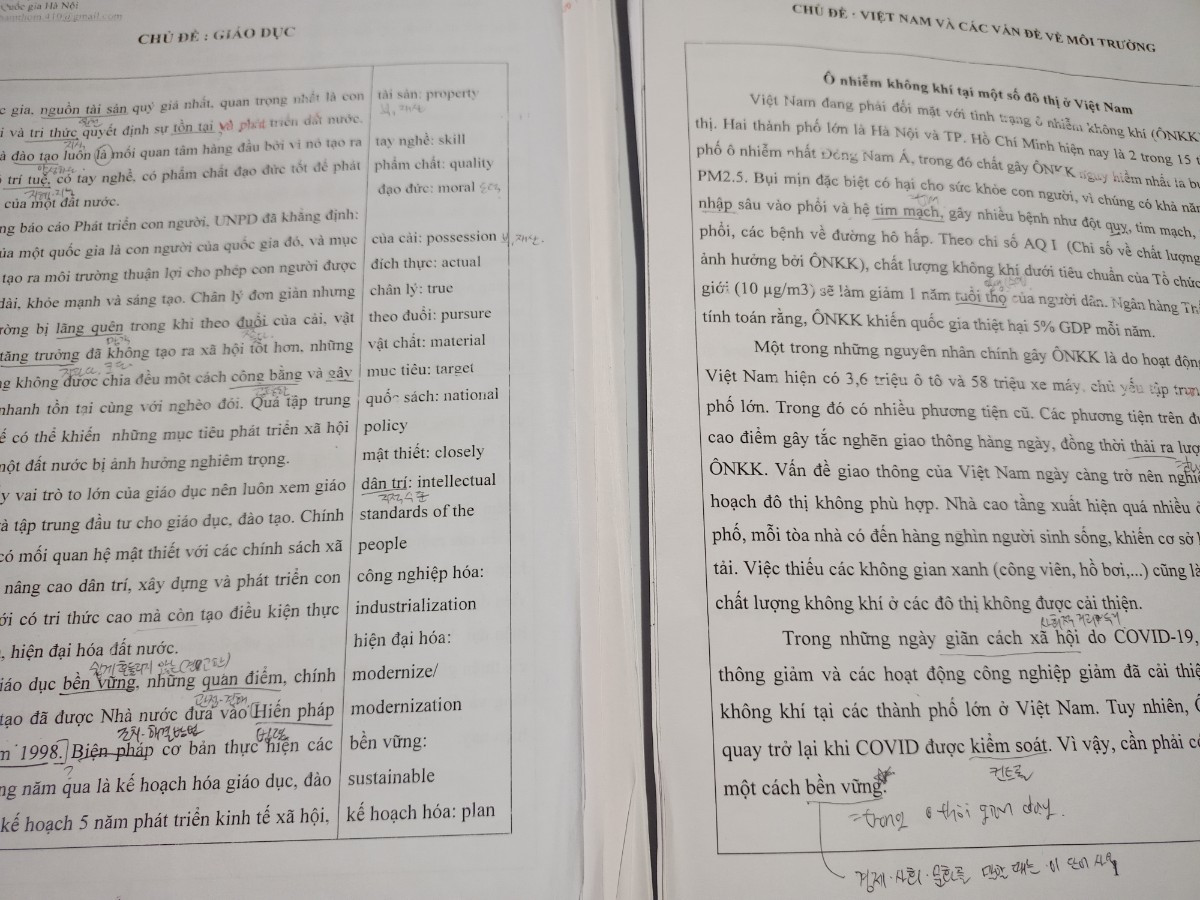 Quốc gia Hà Nội
CHỦ ĐỀ : GIÁO DỤC
gia, nguồn tài sản quý giá nhất, quan trọng nhất là con
và tri thức quyết định sự tồn tại phát triển đất nước.
đào tạo luôn là mối quan tâm hàng đầu bởi vì nó tạo ra
trí tuệ, có tay nghề, có phẩm chất đạo đức tốt để phát
của một đất nước.
báo cáo Phát triển con người, UNPD đã khẳng định:
của một quốc gia là con người của quốc gia đó, và mục
tạo ra môi trường thuận lợi cho phép con người được
dài, khỏe mạnh và sáng tạo. Chân lý đơn giản nhưng
bị lãng quên trong khi theo đuổi của cải, vật
tăng trưởng đã không tạo ra xã hội tốt hơn, những
không được chia đều một cách công bằng và gây
nhanh tồn tại cùng với nghèo đói. Quá tập trung
có thể khiến những mục tiêu phát triển xã hội
một đất nước bị ảnh hưởng nghiêm trọng.
vai trò to lớn của giáo dục nên luôn xem giáo
và tập trung đầu tư cho giáo dục, đào tạo. Chính
có mối quan hệ mật thiết với các chính sách xã
nâng cao dân trí, xây dựng và phát triển con
có tri thức cao mà còn tạo điều kiện thực
, hiện đại hóa đất nước.
쉽게 흔들리지 않는
giáo dục bền vững, những quan điểm, chính
관점
tạo đã được Nhà nước đưa vào Hiến pháp
조치·해결방법
1998. Biện pháp cơ bản thực hiện các
?
năm qua là kế hoạch hóa giáo dục, đào
kế hoạch 5 năm phát triển kinh tế xã hội,
tài sản: property
tay nghề: skill
phẩm chất: quality
đạo đức: moral
của cải: possession 부, 재산
đích thực: actual
chân lý: true
theo đuổi: pursure
vật chất: material
mục tiêu: target
quốc sách: national
policy
mật thiết: closely
dân trí: intellectual
standards of the
people
công nghiệp hóa:
industrialization
hiện đại hóa:
modernize/
modernization
bền vững:
sustainable
kế hoạch hóa: plan
CHỦ ĐỀ - VIỆT NAM VÀ CÁC VẤN ĐỀ VỀ MÔI TRƯỜNG
Ô nhiễm không khí tại một số đô thị ở Việt Nam
Việt Nam đang phải đối mặt với tình trạng ô nhiễm không khí (ÔNKK
thị. Hai thành phố lớn là Hà Nội và TP. Hồ Chí Minh hiện nay là 2 trong 15
phố ô nhiễm nhất Đông Nam Á, trong đó chất gây ÔNKK nguy hiểm nhất là
PM2.5. Bụi mịn đặc biệt có hại cho sức khỏe con người, vì chúng có khả
nhập sâu vào phổi và hệ tim mạch, gây nhiều bệnh như đột quỵ, tim mạch,
phổi, các bệnh về đường hô hấp. Theo chỉ số AQ I (Chỉ số về chất lượng
ảnh hưởng bởi ÔNKK), chất lượng không khí dưới tiêu chuẩn của Tổ chức
giới (10 µg/m3) sẽ làm giảm 1 năm tuổi thọ của người dân. Ngân hàng
tính toán rằng, ÔNKK khiến quốc gia thiệt hại 5% GDP mỗi năm.
Một trong những nguyên nhân chính gây ÔNKK là do hoạt động
Việt Nam hiện có 3,6 triệu ô tô và 58 triệu xe máy, chủ yếu tập
phố lớn. Trong đó có nhiều phương tiện cũ. Các phương tiện trên
cao điểm gây tắc nghẽn giao thông hàng ngày, đồng thời thải ra
ÔNKK. Vấn đề giao thông của Việt Nam ngày càng trở nên
hoạch đô thị không phù hợp. Nhà cao tầng xuất hiện quá nhiều
phố, mỗi tòa nhà có đến hàng nghìn người sinh sống, khiến cơ sở
tải. Việc thiếu các không gian xanh (công viên, hồ bơi,...) cũng
chất lượng không khí ở các đô thị không được cải thiện.
사회적 거리두기
Trong những ngày giãn cách xã hội do COVID-19,
thông giảm và các hoạt động công nghiệp giảm đã cải
không khí tại các thành phố lớn ở Việt Nam. Tuy nhiên,
quay trở lại khi COVID được kiểm soát. Vì vậy, cần phải
컨트롤
một cách bền vững.
= trong thời gian dày.
경제·사회·문화를 말할 때는 이 단어 사용